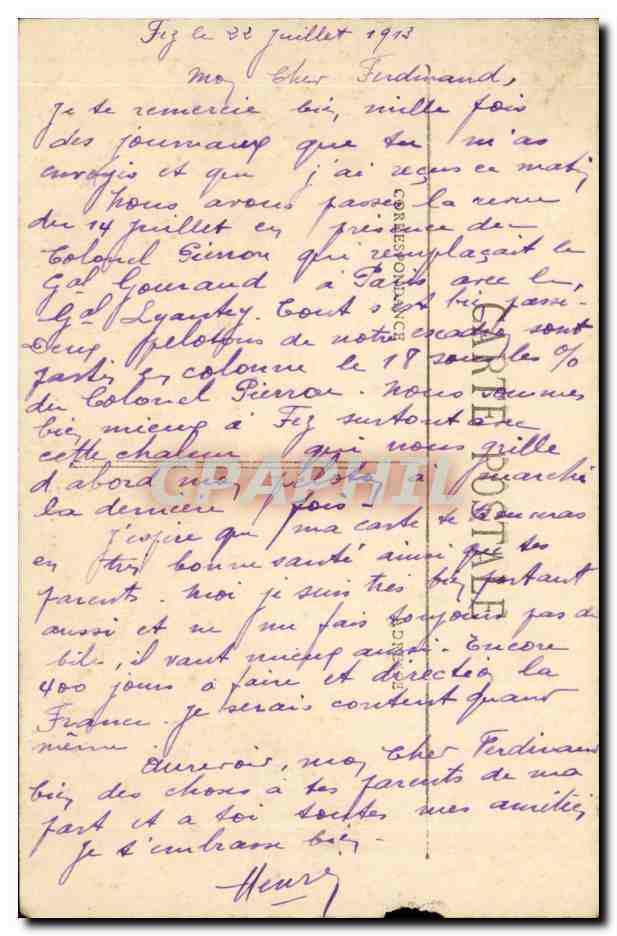 Fez le 22 Juillet 1913
Mon Cher Ferdinand,
Je te remercie bien, mille fois
des journaux que tu m'as
envoyés et que j'ai reçus ce matin
Nous avons passé la revue
du 14 Juillet en présence du
Colonel Pierron qui remplaçait le
Gal Gouraud à Paris avec le
Gal Lyautey. Tout s'est bien passé.
Deux pelotons de notre escadron sont
partis en colonne le 18 sous les %
du Colonel Pierron. Nous sommes
bien mieux à Fez surtout avec
cette chaleur qui nous grille
d'abord mon peloton a marché
la dernière fois
J'espère que ma carte te trouveras
en très bonne santé ainsi que tes
parents. Moi je suis très bien portant
aussi et ne me fais toujours pas de
bile, il vaut mieux aussi. Encore
400 jours à faire et direction la
France. Je serais content quand
même
Aurevoir, mon Cher Ferdinand
bien des choses à tes parents de ma
part et à toi toutes mes amitiés
Je t'embrasse bien.
Henri
CORRESPONDANCE
CARTE POSTALE
ADRESSE
CPAPHIL